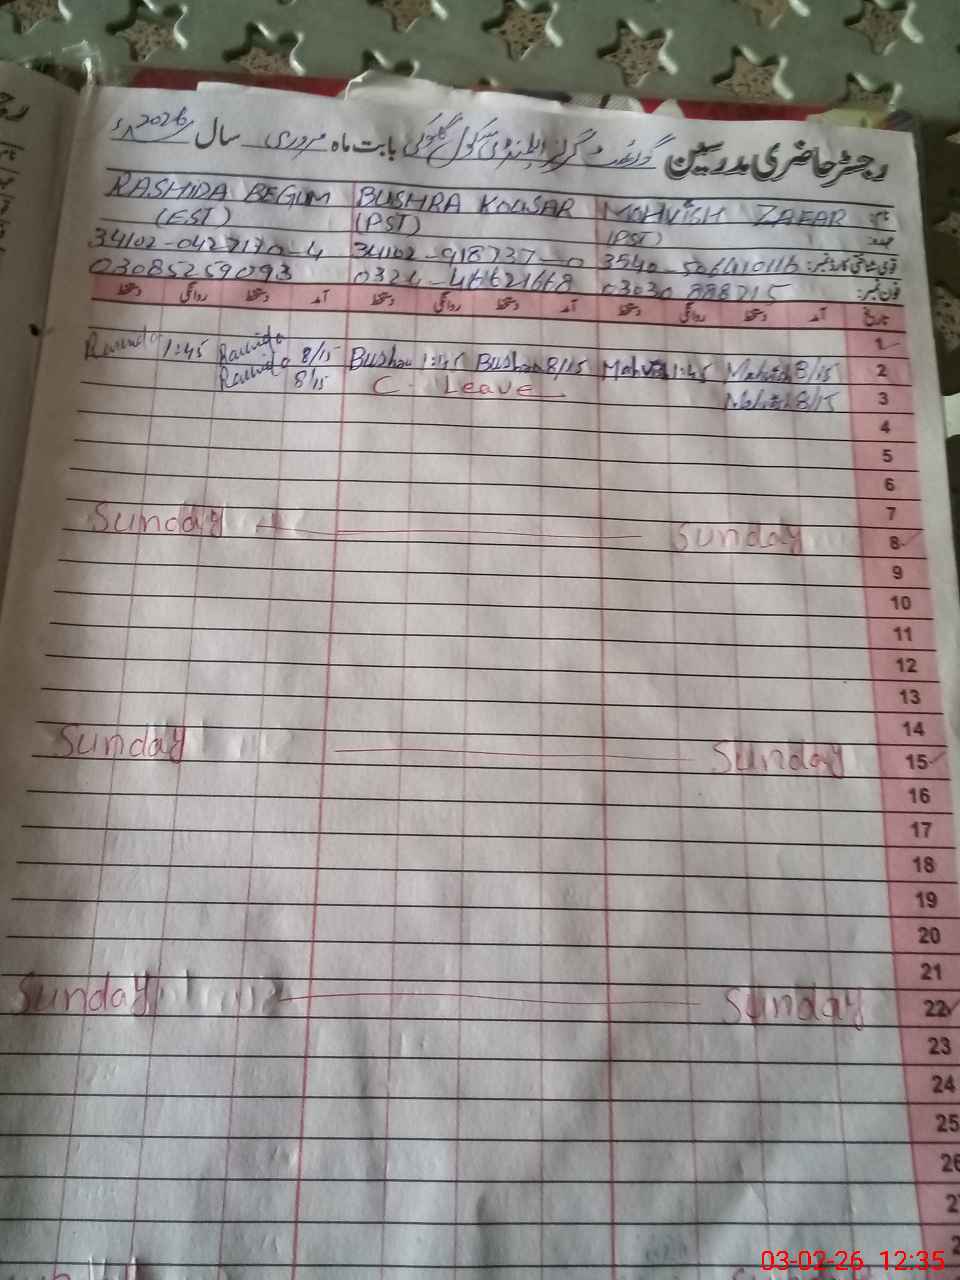 رجسٹر حاضری مدرسین گورنمنٹ گرلز ایلیمنٹری سکول بابت ماہ فروری سال 2026ء
نام RASHIDA BEGUM BUSHRA KOUSAR MEHVISH ZAFAR
عہدہ (EST) (PST) (PST)
قومی شناختی کارڈ نمبر: 34102-0427170-4 34102-918737-0
فون نمبر: 03085259093
تاریخ آمد دستخط روانگی دستخط آمد دستخط روانگی دستخط آمد دستخط روانگی دستخط
1
Rashida 1:45 Rashida 8/15 Bushra 1:45 Bushra 8/15 Mehvish 1:45 Mehvish 8/15 2
Rashida 8/15 C. Leave Mehvish 8/15 3
4
5
6
7
Sunday Sunday 8
9
10
11
12
13
14
Sunday Sunday 15
16
17
18
19
20
21
Sunday Sunday 22
23
24
25
26
03-02-26 12:35